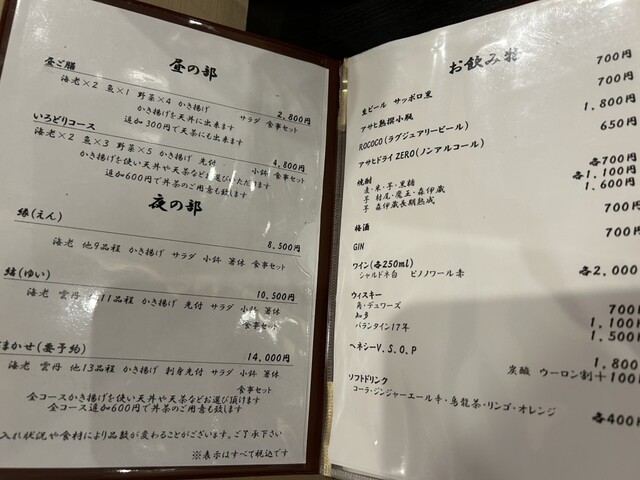 昼の部
昼ご膳 2,800円
海老×2 魚×1 野菜×4 かき揚げ サラダ 食事セット
かき揚げを天丼に出来ます
追加300円で天茶にも出来ます
いろどりコース 4,800円
海老×2 魚×3 野菜×5 かき揚げ 先付 小鉢 食事セット
かき揚げを使い天丼や天茶などお選びいただけます
追加600円で丼茶のご用意も致します
夜の部
縁(えん) 8,500円
海老 他9品程 かき揚げ サラダ 小鉢 箸休 食事セット
結(ゆい) 10,500円
海老 雲丹 他11品程 かき揚げ 先付 サラダ 小鉢 箸休
食事セット
まかせ(要予約) 14,000円
海老 雲丹 他13品程 かき揚げ 刺身 先付 サラダ 小鉢 箸休
食事セット
全コースかき揚げを使い天丼や天茶などお選び頂けます
全コース追加600円で丼茶のご用意も致します
入れ状況や食材により品数が変わることがございます。ご了承下さい
※表示はすべて税込です
お飲み物
生ビール サッポロ黒 700円
アサヒ熟撰小瓶 700円
ROCOCO(ラグジュアリービール) 1,800円
アサヒドライZERO(ノンアルコール) 650円
焼酎
麦・米・芋・黒糖 各700円
芋 村尾・魔王・森伊蔵 各1,100円
芋 森伊蔵長期熟成 1,600円
梅酒 700円
GIN 700円
ワイン(各250ml)
シャルドネ白 ピノノワール赤 各2,000
ウィスキー
角・デュワーズ 700円
知多 1,100
バランタイン17年 1,500
ヘネシーV.S.O.P 1,800
炭酸 ウーロン割+100
ソフトドリンク
コーラ・ジンジャーエール・烏龍茶・リンゴ・オレンジ
各400円